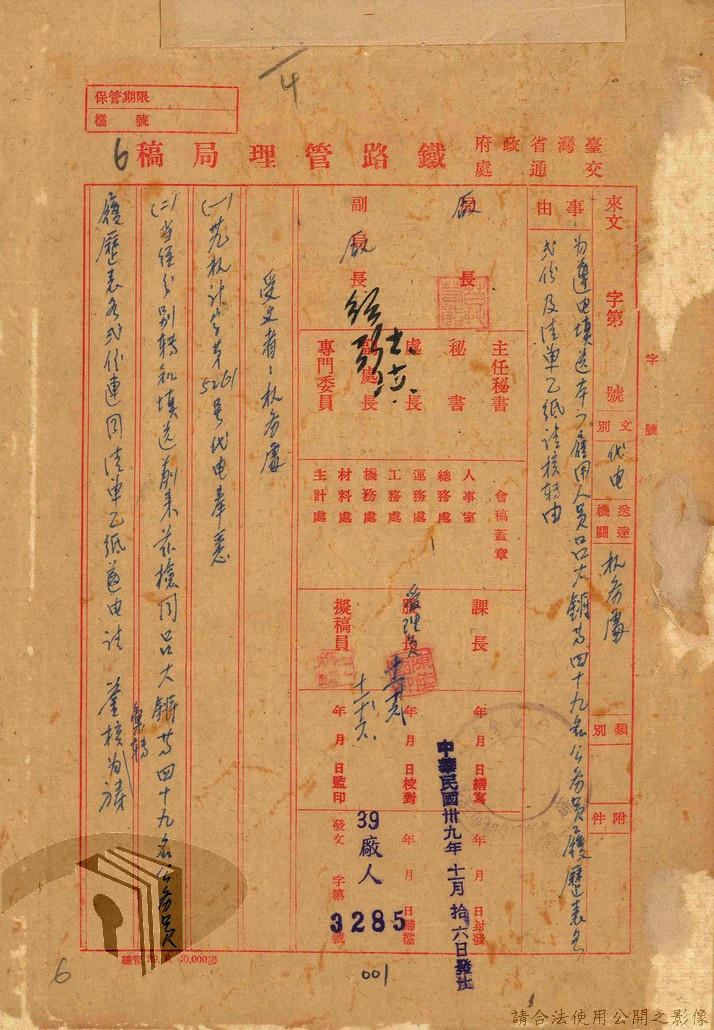 4
保管期限
檔號
6
臺灣省政府
交通處
鐵路管理局稿
來文 字第 號
字 號
文別 代电
送達機關 机务處
類別
附件
事由
为遵电填送本厂雇用人員
四十九名公务員履歷表各
弍份及清单乙紙请核转由
局長
副局長
主任秘書
秘書
處長
副處長
專門委員
會稿蓋章
人事室
總務處
運務處
工務處
機務處
材料處
主計處
課長
股長
管理員
擬稿員
年 月 日繕寫
年 月 日校對
年 月 日監印
年 月 日封發
年 月 日歸檔
發文 字第 號
中華民國卅九年十一月拾六日發出
39 廠人
3285
受文者：机务處
(一)
机计字第5261号代电奉悉
(二)当经分别轉知填送前来兹檢同
四十九名公务員
履歷表各弍份連同清单乙紙
电请
鉴核
彙轉
001
6
請合法使用公開之影像